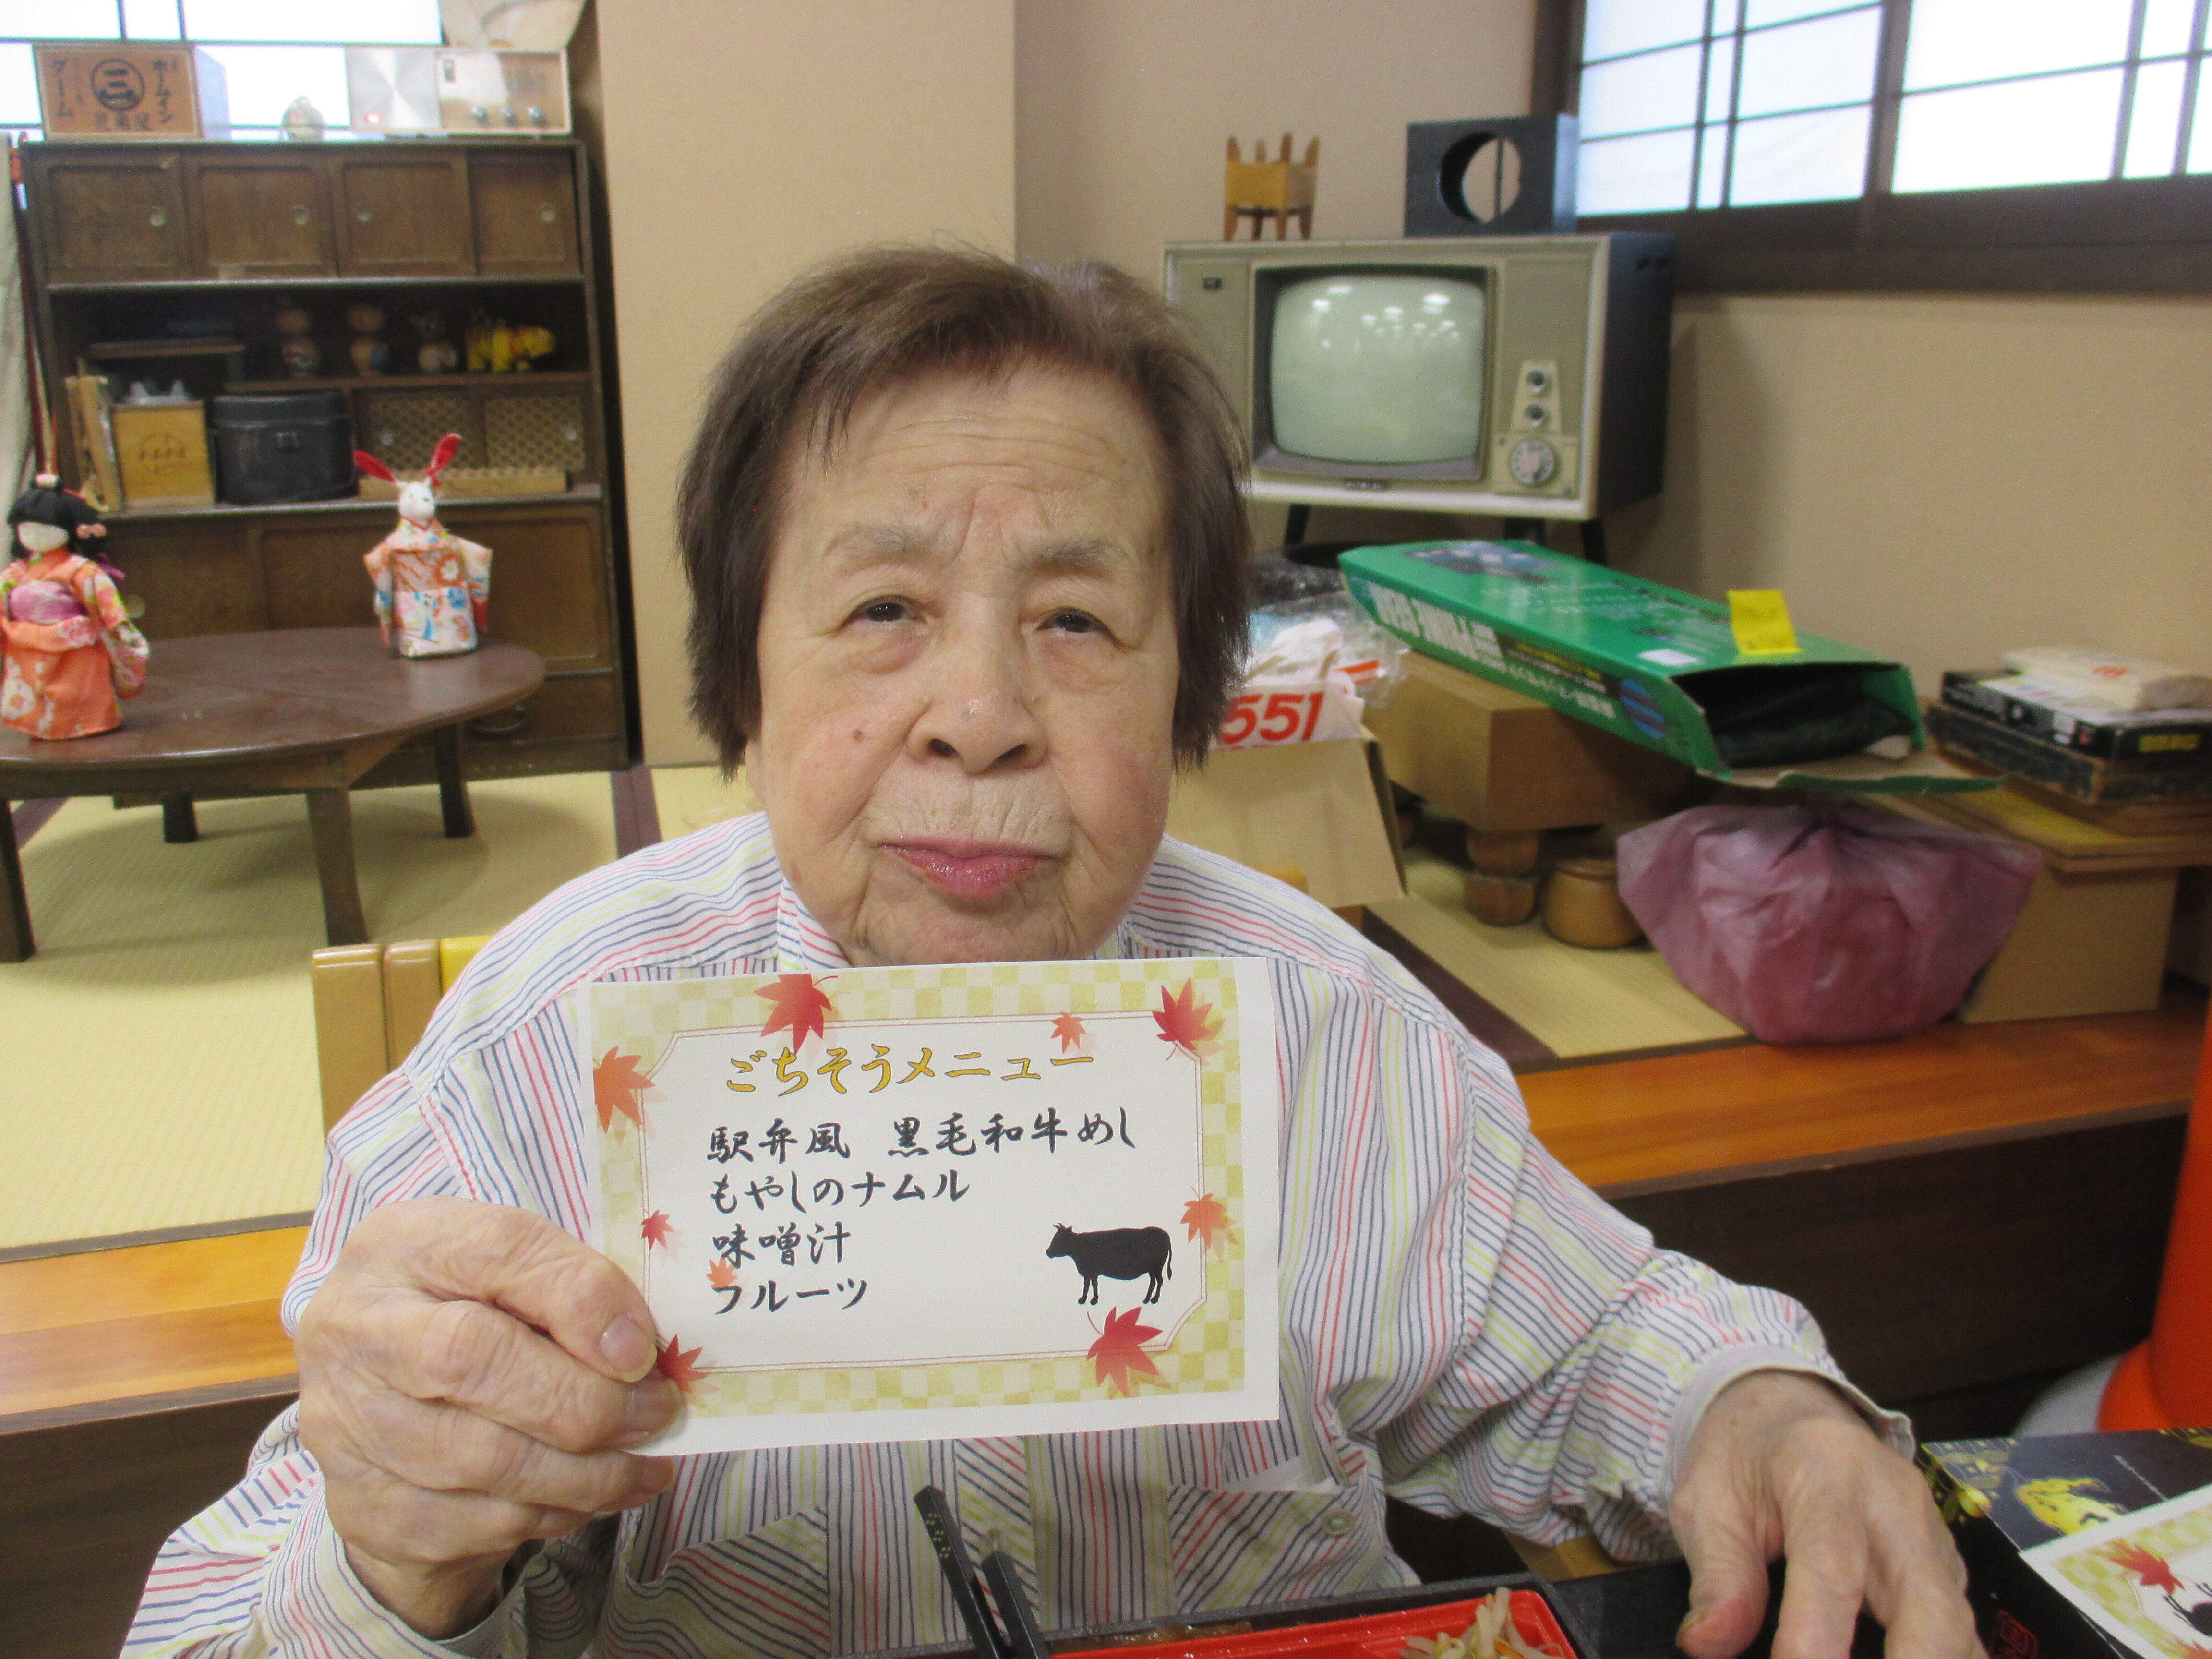 ホームイン
ダーム
三
551
ごちそうメニュー
駅弁風 黒毛和牛めし
もやしのナムル
味噌汁
フルーツ